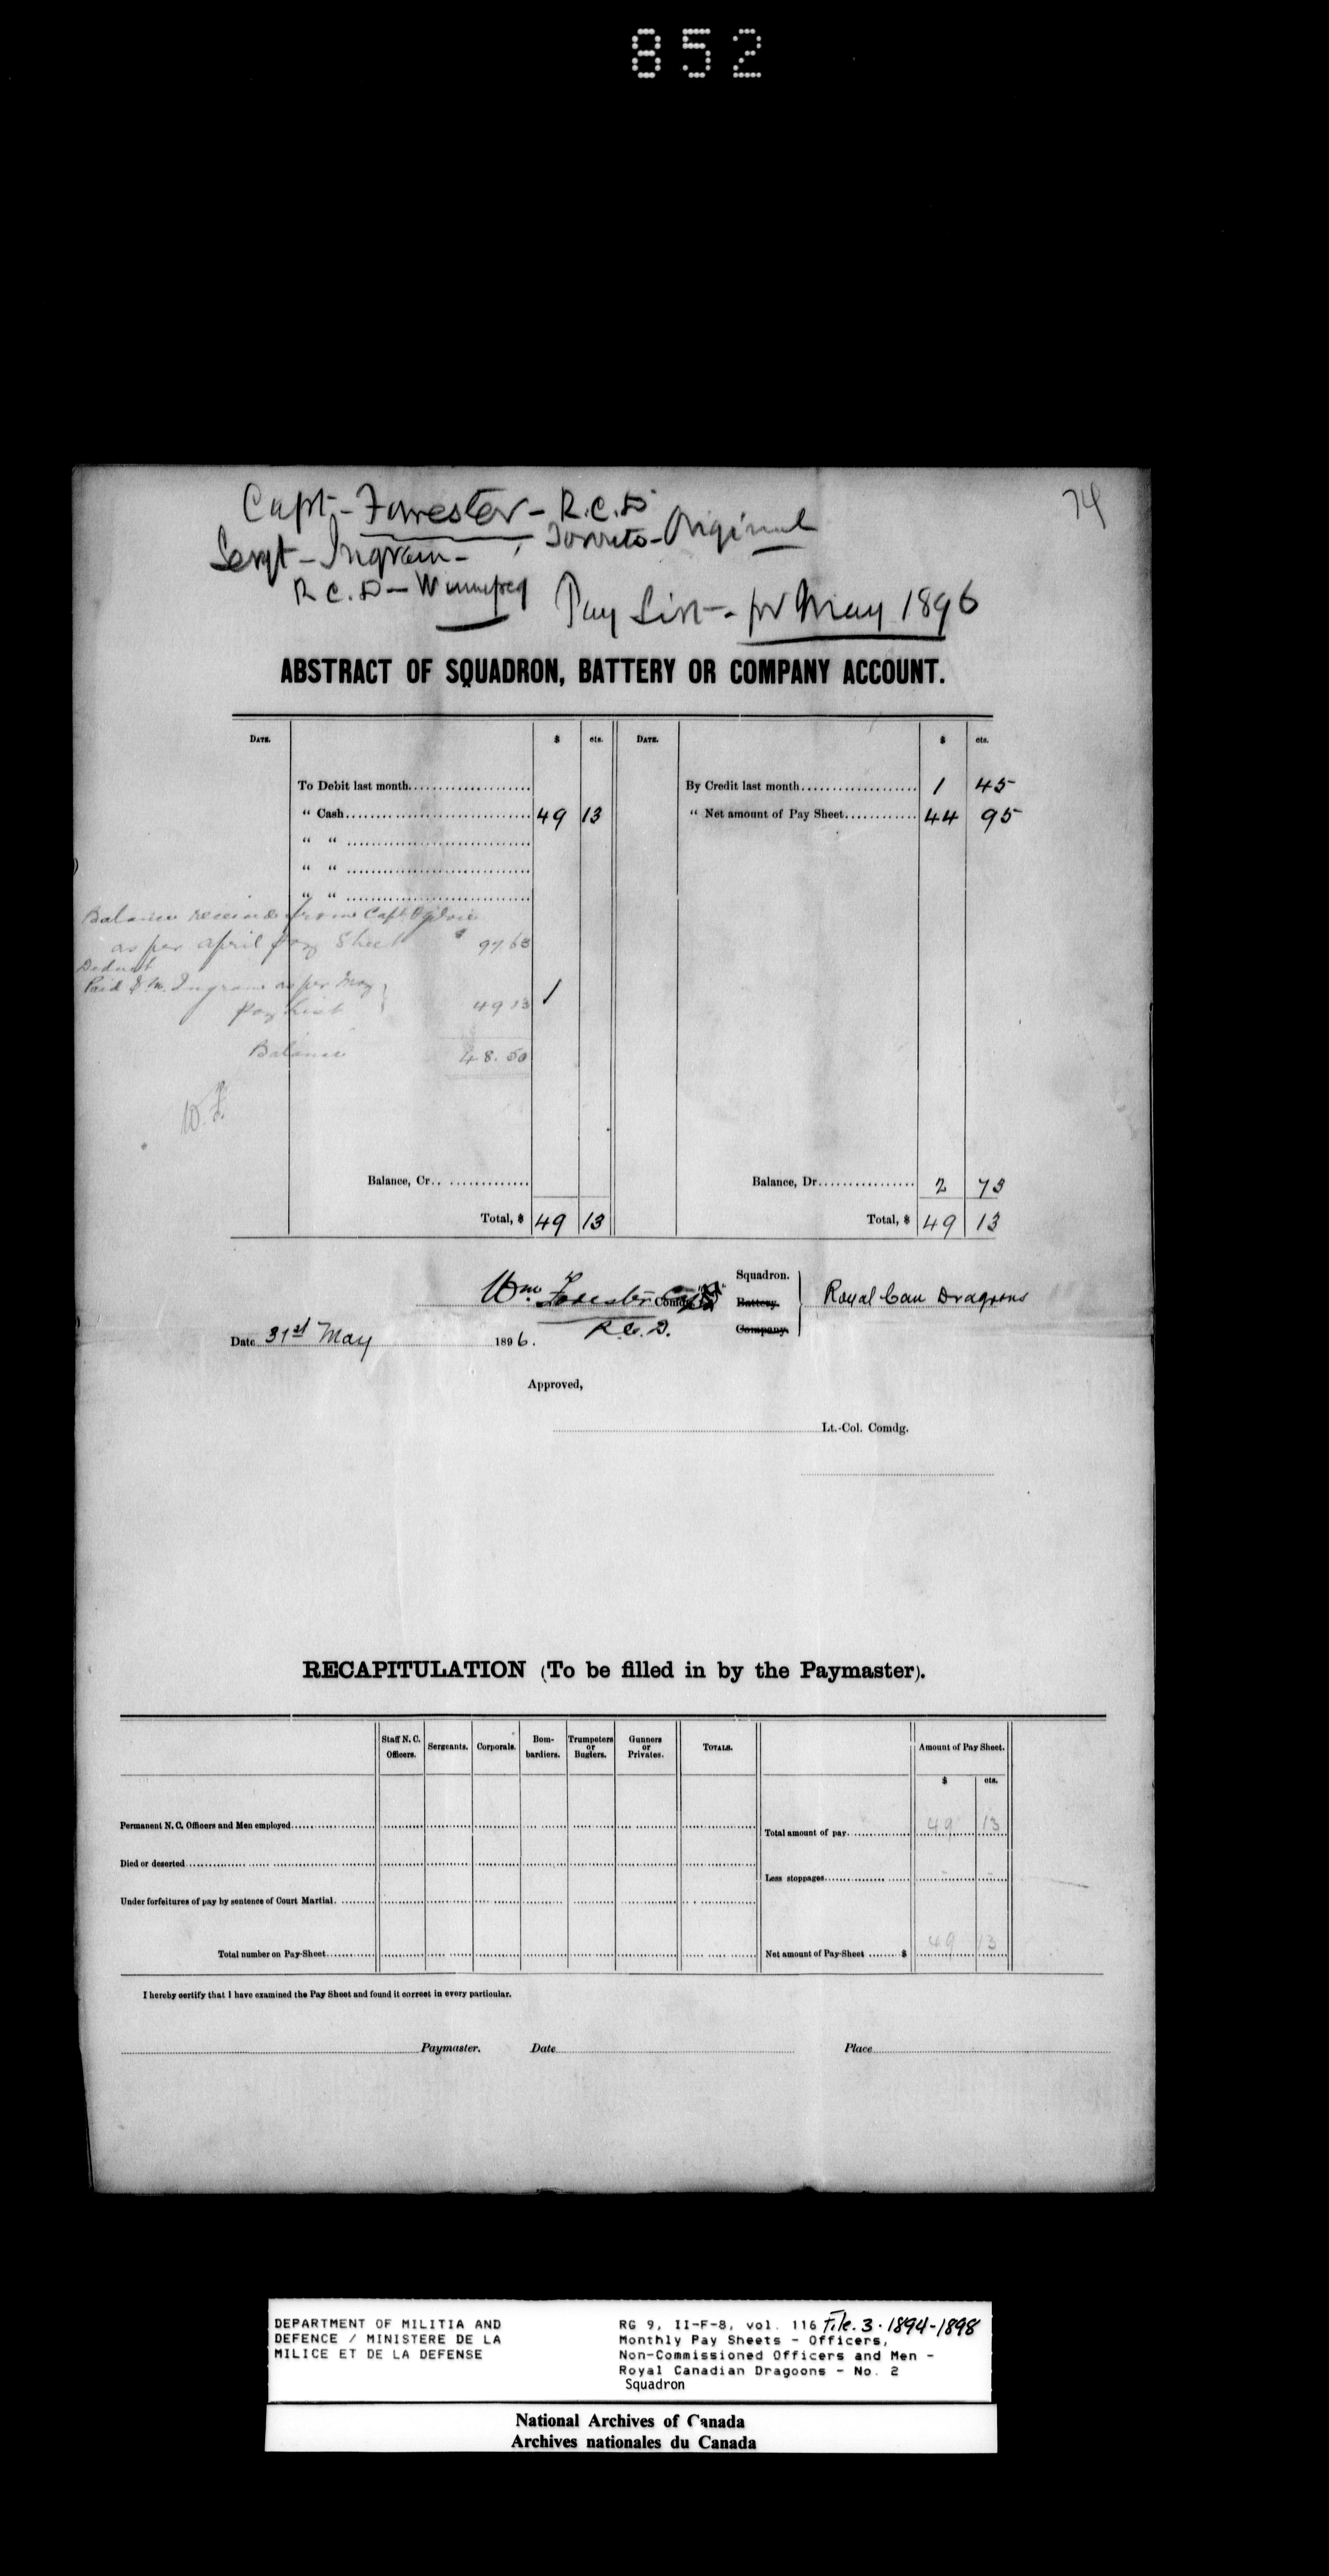 852
74
Capt - Forrester - R.C.D
Toronto - Original
Sergt - Ingram -
R.C.D - Winnipeg
Pay List - for May 1896
ABSTRACT OF SQUADRON, BATTERY OR COMPANY ACCOUNT.
DATE. $ cts. DATE. $ cts.
To Debit last month By Credit last month 1 45
" Cash 49 13 " Net amount of Pay Sheet 44 95
" "
" "
" "
Balance received from Capt. Ogilvie
as per April Pay Sheet $ 97 63
Deduct
Paid Ingram as per May
Pay List 49 13
Balance 48.50
W.F.
Balance, Cr. Balance, Dr. 2 73
Total, $ 49 13 Total, $ 49 13
Squadron.
Wm. Forester Capt Comdg. "B" Battery. Royal Can Dragoons
R.C.D. Company.
Date 31st May 1896.
Approved,
Lt.-Col. Comdg.
RECAPITULATION (To be filled in by the Paymaster).
Staff N. C. Officers. Sergeants. Corporals. Bom-bardiers. Trumpeters or Buglers. Gunners or Privates. TOTALS. Amount of Pay Sheet.
$ cts.
Permanent N. C. Officers and Men employed Total amount of pay 49 13
Died or deserted Less stoppages - -
Under forfeitures of pay by sentence of Court Martial
Total number on Pay-Sheet Net amount of Pay-Sheet $ 49 13
I hereby certify that I have examined the Pay Sheet and found it correct in every particular.
Paymaster. Date Place
DEPARTMENT OF MILITIA AND
DEFENCE / MINISTERE DE LA
MILICE ET DE LA DEFENSE
RG 9, II-F-8, vol. 116 File. 3. 1894-1898
Monthly Pay Sheets - Officers,
Non-Commissioned Officers and Men -
Royal Canadian Dragoons - No. 2
Squadron
National Archives of Canada
Archives nationales du Canada